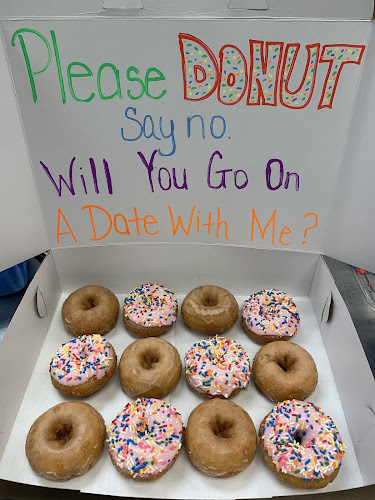 Please DONUT
Say no.
Will You Go On
A Date With Me?